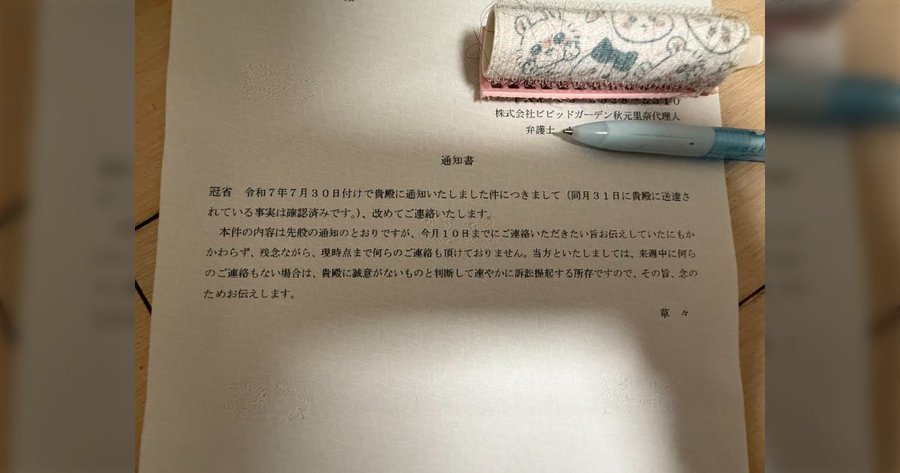 株式会社ビビッドガーデン秋元里奈代理人
弁護士
通知書
冠省 令和7年7月30日付けで貴殿に通知いたしました件につきまして(同月31日に貴殿に送達さ
れている事実は確認済みです。)、改めてご連絡いたします。
本件の内容は先般の通知のとおりですが、今月10日までにご連絡いただきたい旨お伝えしていたにもか
かわらず、残念ながら、現時点まで何らのご連絡も頂けておりません。当方といたしましては、来週中に何ら
のご連絡もない場合は、貴殿に誠意がないものと判断して速やかに訴訟提起する所存ですので、その旨、念の
ためお伝えします。
草々